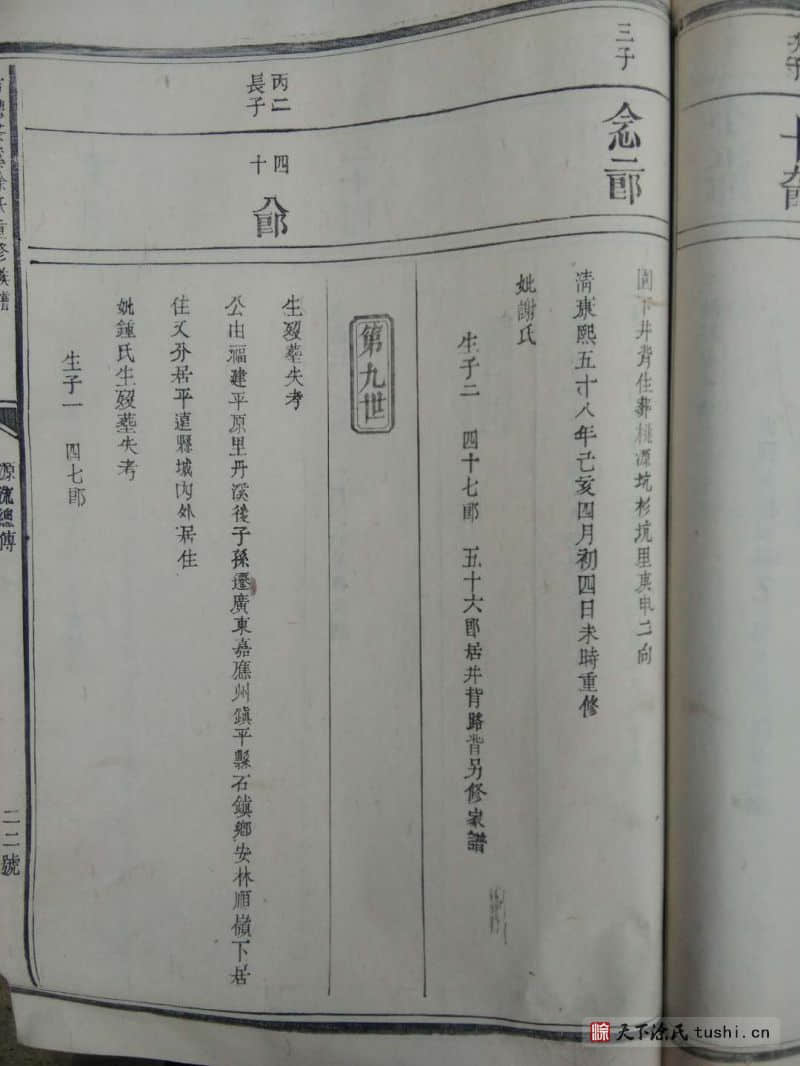 三子
念二郎
圓下井背住葬桃源坑杉坑里庚申二向
清康熙五十八年己亥四月初四日未時重修
妣謝氏
生子二 四十七郎 五十六郎居井背路背另修家譜
第九世
丙二
長子
四十
八郎
生歿塟失考
公由福建平原里丹溪後子孫遷廣東嘉應州鎮平縣石鎮鄉安林順嶺下居
住又分居平遠縣城內外居住
妣鍾氏生歿塟失考
生子一 四七郎
源流總傳
二二號
天下凃氏 tushi.cn